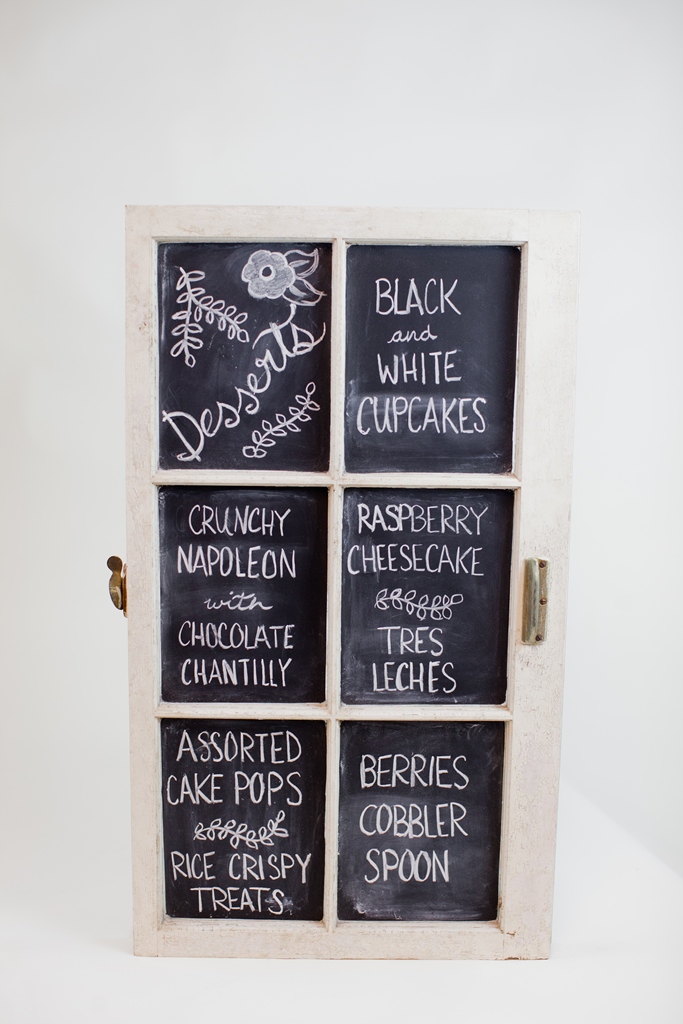 Desserts
BLACK
and
WHITE
CUPCAKES
CRUNCHY
NAPOLEON
with
CHOCOLATE
CHANTILLY
RASPBERRY
CHEESECAKE
TRES
LECHES
ASSORTED
CAKE POPS
RICE CRISPY
TREATS
BERRIES
COBBLER
SPOON